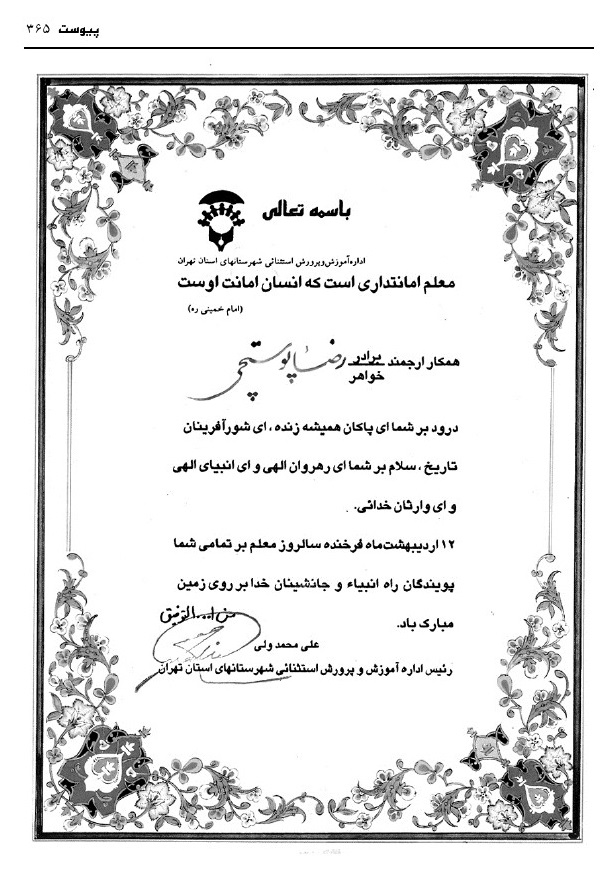 پیوست ۳۶۵
باسمه تعالی
اداره آموزش و پرورش استثنائی شهرستانهای استان تهران
معلم امانتداری است که انسان امانت اوست
(امام خمینی ره)
همکار ارجمند برادر رضا پوستچی
خواهر
درود بر شما ای پاکان همیشه زنده ، ای شورآفرینان
تاریخ ، سلام بر شما ای رهروان الهی و ای انبیای الهی
و ای وارثان خدائی.
۱۲ اردیبهشت ماه فرخنده سالروز معلم بر تمامی شما
پویندگان راه انبیاء و جانشینان خدا بر روی زمین
مبارک باد.
من ا... التوفیق
علی محمد ولی
رئیس اداره آموزش و پرورش استثنائی شهرستانهای استان تهران